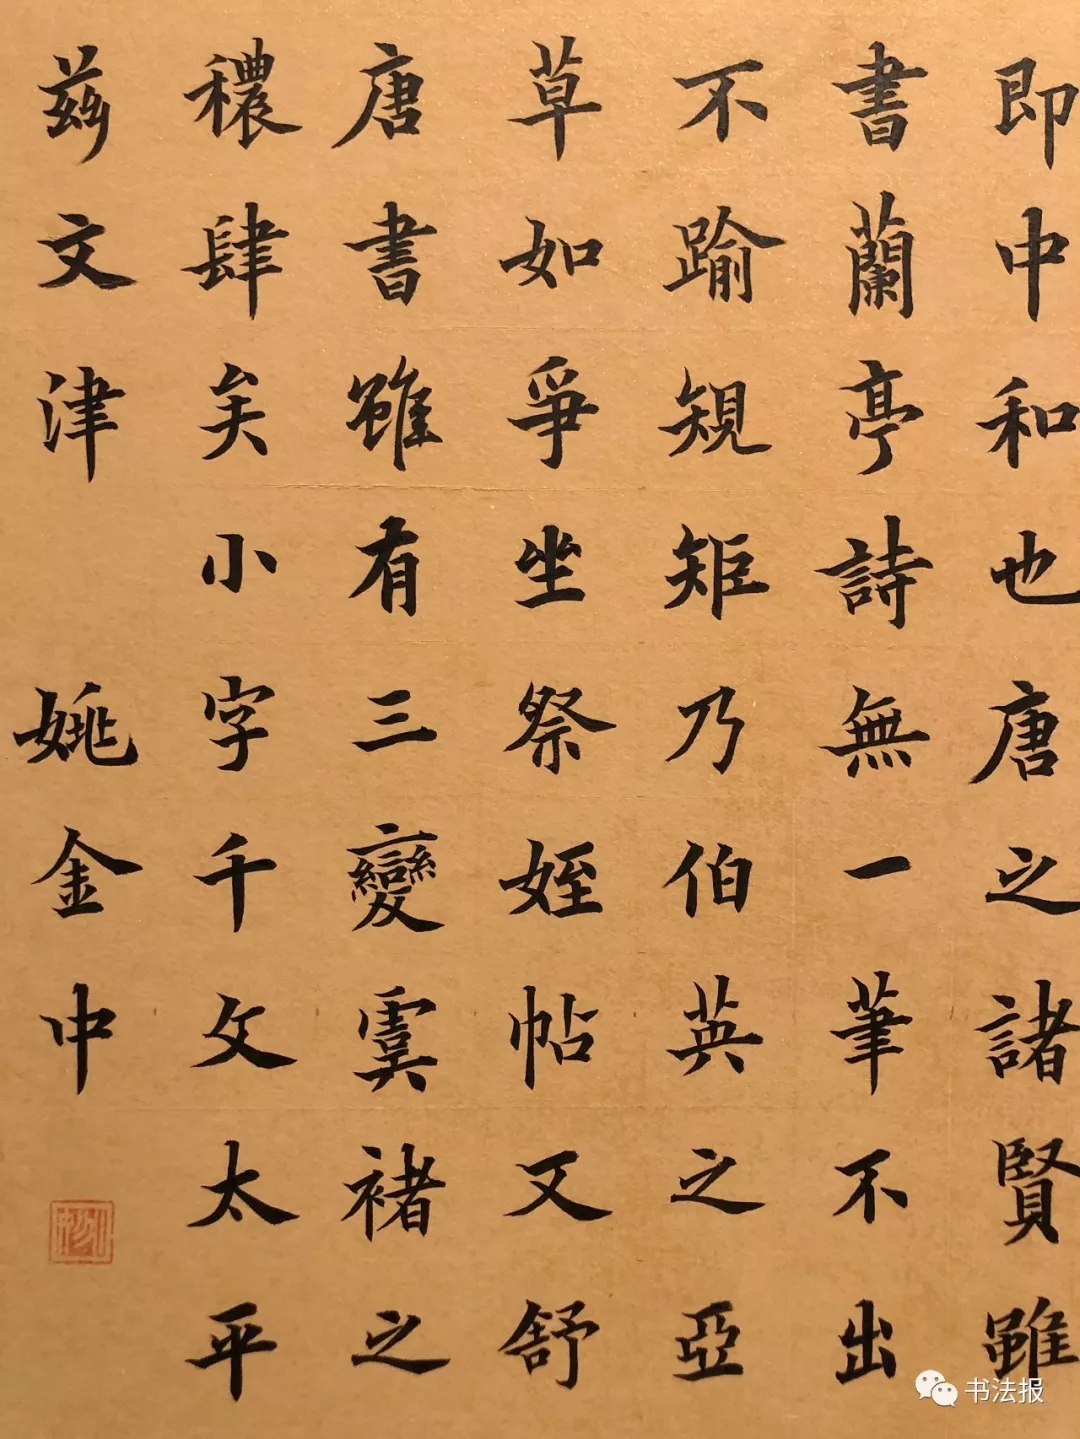 即中和也唐之諸賢雖
書蘭亭詩無一筆不出
不踰規矩乃伯英之亞
草如爭坐祭姪帖又舒
唐書雖有三變虞褚之
穠肆矣小字千文太平
兹文津 姚金中
书法报